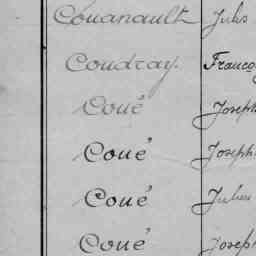 Couanault Jules
Coudray François
Coué Joseph
Coué Joseph
Coué Julien
Coué Joseph